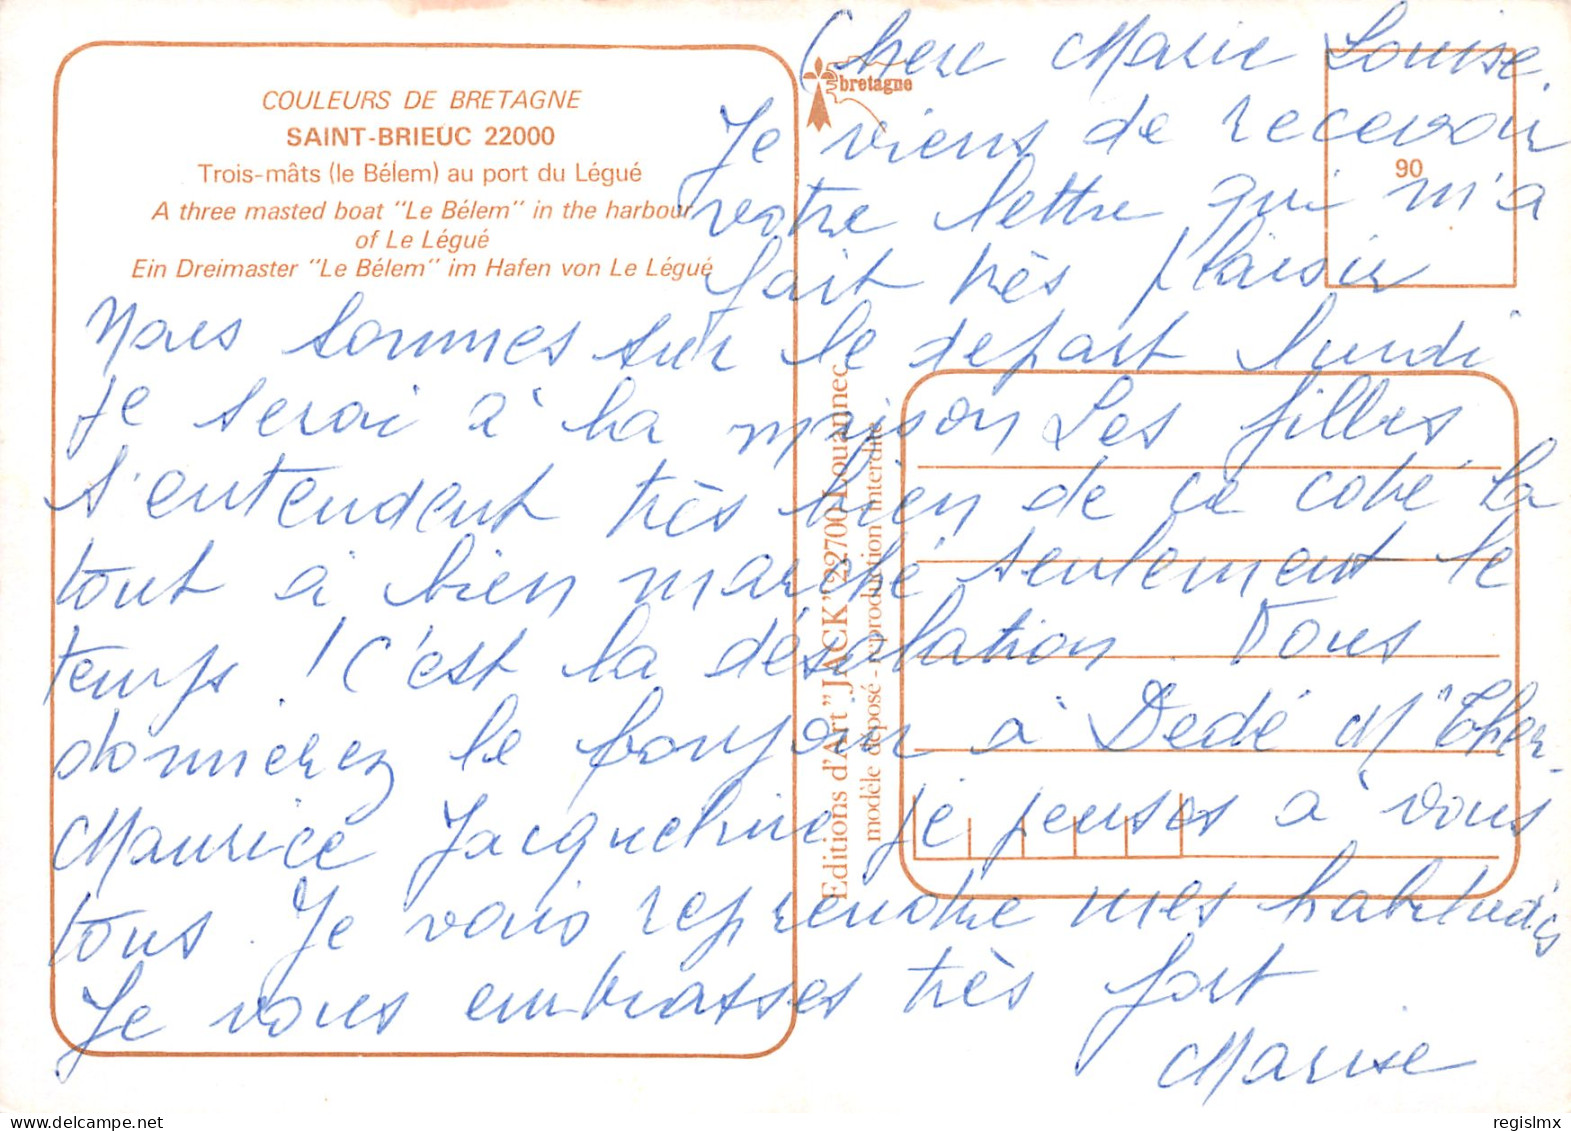 COULEURS DE BRETAGNE
SAINT-BRIEUC 22000
Trois-mâts (le Bélem) au port du Légué
A three masted boat "Le Bélem" in the harbour
of Le Légué
Ein Dreimaster "Le Bélem" im Hafen von Le Légué
bretagne
90
Editions d'Art "JACK" 22700 Louannec
modèle déposé - reproduction interdite
Chere Marie Louise.
Je viens de recevoir
votre lettre qui m'a
fait très plaisir
Nous sommes sur le depart lundi
je serai à la maison Les filles
s'entendent très bien de ce coté la
tout à bien marché seulement le
temps ! C'est la désolation Vous
donnerez le bonjour à Dedé Mr Ther-
Maurice Jacqueline je penses à vous
tous. Je vais reprendre mes habitudes
Je vous embrasses très fort
Marise
regislmx